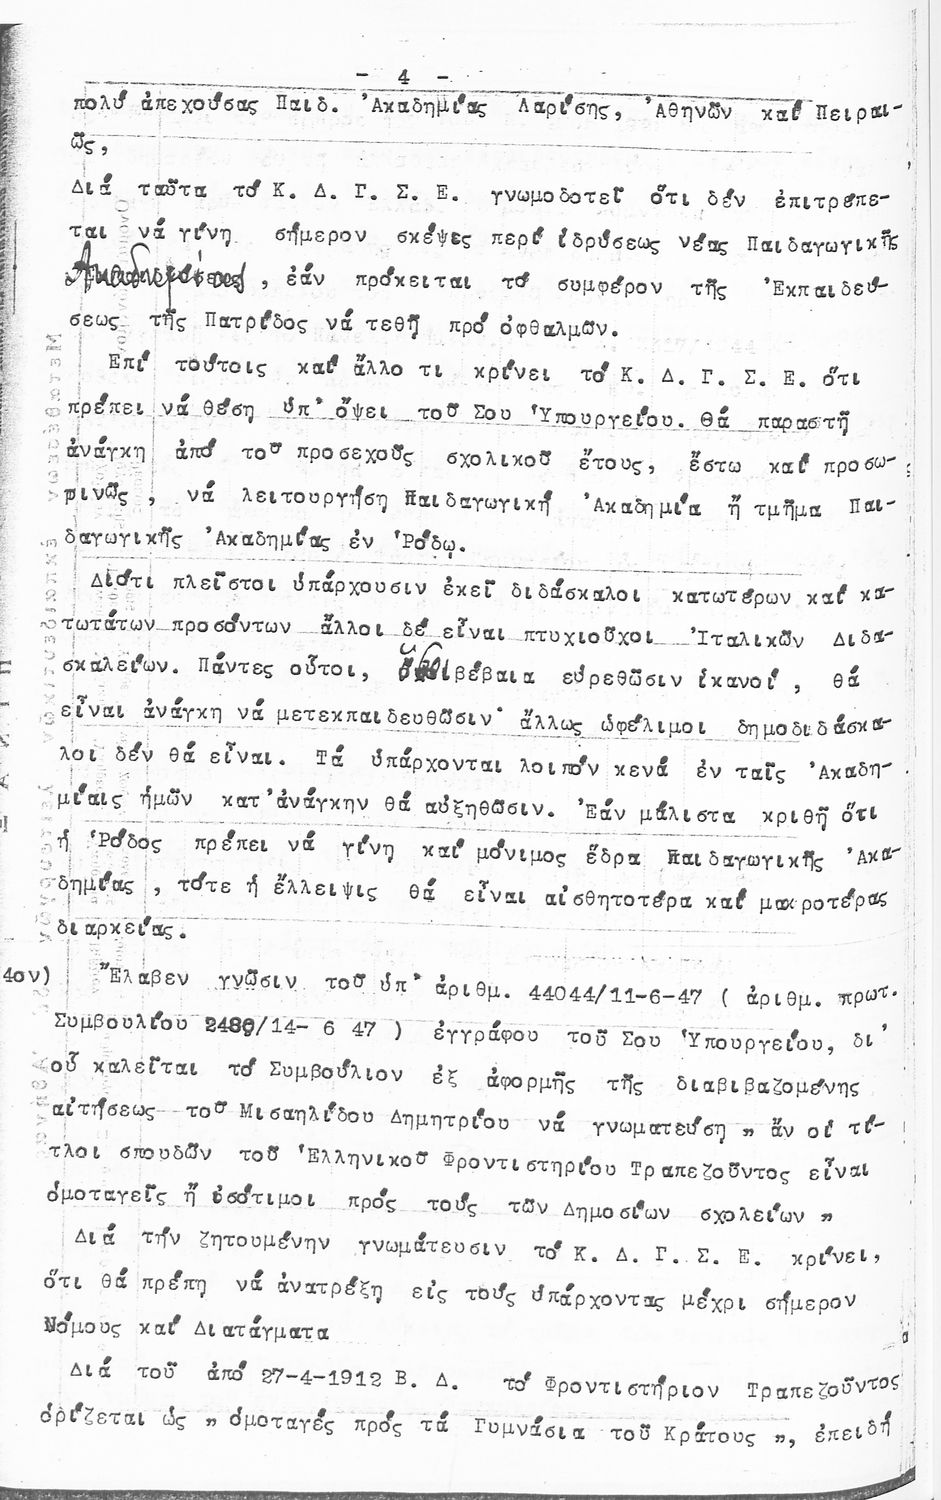 - 4 -
πολύ ἀπεχούσας Παιδ. Ἀκαδημίας Λαρίσης, Ἀθηνῶν καί Πειραι-
ῶς,
Διά ταῦτα τό Κ. Δ. Γ. Σ. Ε. γνωμοδοτεῖ ὅτι δέν ἐπιτρέπε-
ται νά γίνη σήμερον σκέψις περί ἱδρύσεως νέας Παιδαγωγικῆς
Ἀκαδημίας, ἐάν πρόκειται τό συμφέρον τῆς Ἐκπαιδεύ-
σεως τῆς Πατρίδος νά τεθῆ πρό ὀφθαλμῶν.
Ἐπί τούτοις καί ἄλλο τι κρίνει τό Κ. Δ. Γ. Σ. Ε. ὅτι
πρέπει νά θέση ὑπ' ὄψει τοῦ Σου Ὑπουργείου. Θά παραστῆ
ἀνάγκη ἀπό τοῦ προσεχοῦς σχολικοῦ ἔτους, ἔστω καί προσω-
ρινῶς, νά λειτουργήση Παιδαγωγική Ἀκαδημία ἤ τμῆμα Παι-
δαγωγικῆς Ἀκαδημίας ἐν Ῥόδῳ.
Διότι πλεῖστοι ὑπάρχουσιν ἐκεῖ διδάσκαλοι κατωτέρων καί κα-
τωτάτων προσόντων ἄλλοι δέ εἶναι πτυχιοῦχοι Ἰταλικῶν Διδα-
σκαλείων. Πάντες οὗτοι, βέβαια εὑρεθῶσιν ἱκανοί, θά
εἶναι ἀνάγκη νά μετεκπαιδευθῶσιν· ἄλλως ὠφέλιμοι δημοδιδάσκα-
λοι δέν θά εἶναι. Τά ὑπάρχονται λοιπόν κενά ἐν ταῖς Ἀκαδη-
μίαις ἡμῶν κατ' ἀνάγκην θά αὐξηθῶσιν. Ἐάν μάλιστα κριθῆ ὅτι
ἡ Ῥόδος πρέπει νά γίνη καί μόνιμος ἕδρα Παιδαγωγικῆς Ἀκα-
δημίας, τότε ἡ ἔλλειψις θά εἶναι αἰσθητοτέρα καί μακροτέρας
διαρκείας.
4ον) Ἔλαβεν γνῶσιν τοῦ ὑπ' ἀριθμ. 44044/11-6-47 ( ἀριθμ. πρωτ.
Συμβουλίου 2480/14- 6 47 ) ἐγγράφου τοῦ Σου Ὑπουργείου, δι'
οὗ καλεῖται τό Συμβούλιον ἐξ ἀφορμῆς τῆς διαβιβαζομένης
αἰτήσεως τοῦ Μισαηλίδου Δημητρίου νά γνωματεύση „ ἄν οἱ τί-
τλοι σπουδῶν τοῦ Ἑλληνικοῦ Φροντιστηρίου Τραπεζοῦντος εἶναι
ὁμοταγεῖς ἤ ἰσότιμοι πρός τούς τῶν Δημοσίων σχολείων „
Διά τήν ζητουμένην γνωμάτευσιν τό Κ. Δ. Γ. Σ. Ε. κρίνει,
ὅτι θά πρέπη νά ἀνατρέξη εἰς τούς ὑπάρχοντας μέχρι σήμερον
Νόμους καί Διατάγματα
Διά τοῦ ἀπό 27-4-1912 Β. Δ. τό Φροντιστήριον Τραπεζοῦντος
ὁρίζεται ὡς „ ὁμοταγές πρός τά Γυμνάσια τοῦ Κράτους „, ἐπειδή